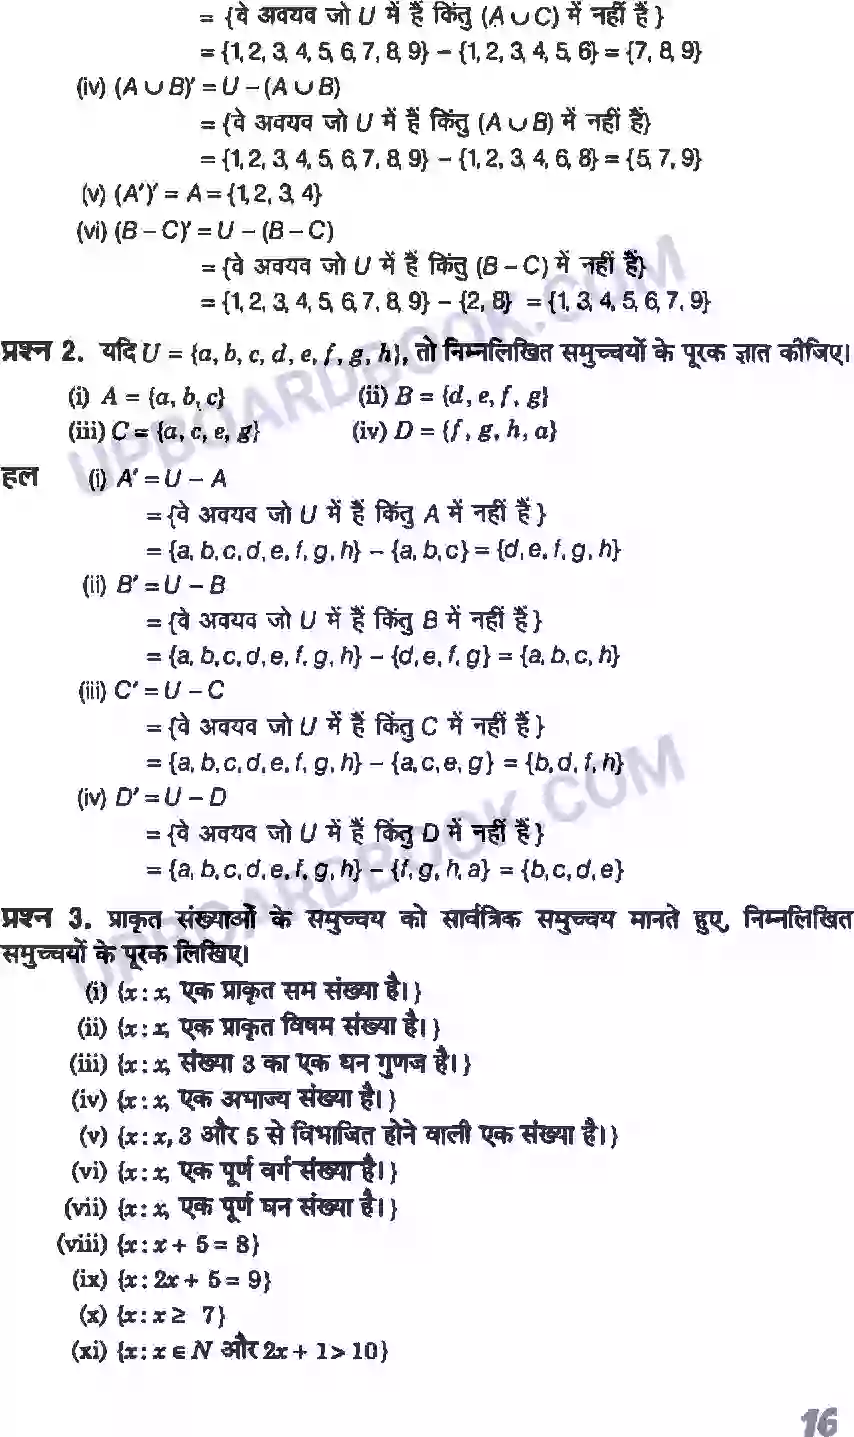 = {वे अवयव जो U में हैं किंतु (A ∪ C) में नहीं हैं }
= {1, 2, 3, 4, 5, 6, 7, 8, 9} − {1, 2, 3, 4, 5, 6} = {7, 8, 9}
(iv) (A ∪ B)′ = U − (A ∪ B)
= {वे अवयव जो U में हैं किंतु (A ∪ B) में नहीं हैं}
= {1, 2, 3, 4, 5, 6, 7, 8, 9} − {1, 2, 3, 4, 6, 8} = {5, 7, 9}
(v) (A′)′ = A = {1, 2, 3, 4}
(vi) (B − C)′ = U − (B − C)
= {वे अवयव जो U में हैं किंतु (B − C) में नहीं हैं}
= {1, 2, 3, 4, 5, 6, 7, 8, 9} − {2, 8} = {1, 3, 4, 5, 6, 7, 9}
प्रश्न 2. यदि U = {a, b, c, d, e, f, g, h}, तो निम्नलिखित समुच्चयों के पूरक ज्ञात कीजिए।
(i) A = {a, b, c} (ii) B = {d, e, f, g}
(iii) C = {a, c, e, g} (iv) D = {f, g, h, a}
हल (i) A′ = U − A
= {वे अवयव जो U में हैं किंतु A में नहीं हैं }
= {a, b, c, d, e, f, g, h} − {a, b, c} = {d, e, f, g, h}
(ii) B′ = U − B
= {वे अवयव जो U में हैं किंतु B में नहीं हैं }
= {a, b, c, d, e, f, g, h} − {d, e, f, g} = {a, b, c, h}
(iii) C′ = U − C
= {वे अवयव जो U में हैं किंतु C में नहीं हैं }
= {a, b, c, d, e, f, g, h} − {a, c, e, g} = {b, d, f, h}
(iv) D′ = U − D
= {वे अवयव जो U में हैं किंतु D में नहीं हैं }
= {a, b, c, d, e, f, g, h} − {f, g, h, a} = {b, c, d, e}
प्रश्न 3. प्राकृत संख्याओं के समुच्चय को सार्वत्रिक समुच्चय मानते हुए, निम्नलिखित
समुच्चयों के पूरक लिखिए।
(i) {x : x, एक प्राकृत सम संख्या है। }
(ii) {x : x, एक प्राकृत विषम संख्या है। }
(iii) {x : x, संख्या 3 का एक धन गुणज है। }
(iv) {x : x, एक अभाज्य संख्या है। }
(v) {x : x, 3 और 5 से विभाजित होने वाली एक संख्या है। }
(vi) {x : x, एक पूर्ण वर्ग संख्या है। }
(vii) {x : x, एक पूर्ण घन संख्या है। }
(viii) {x : x + 5 = 8}
(ix) {x : 2x + 5 = 9}
(x) {x : x ≥ 7}
(xi) {x : x ∈ N और 2x + 1 > 10}
16
UPBOARDBOOK.COM
UPBOARDBOOK.COM